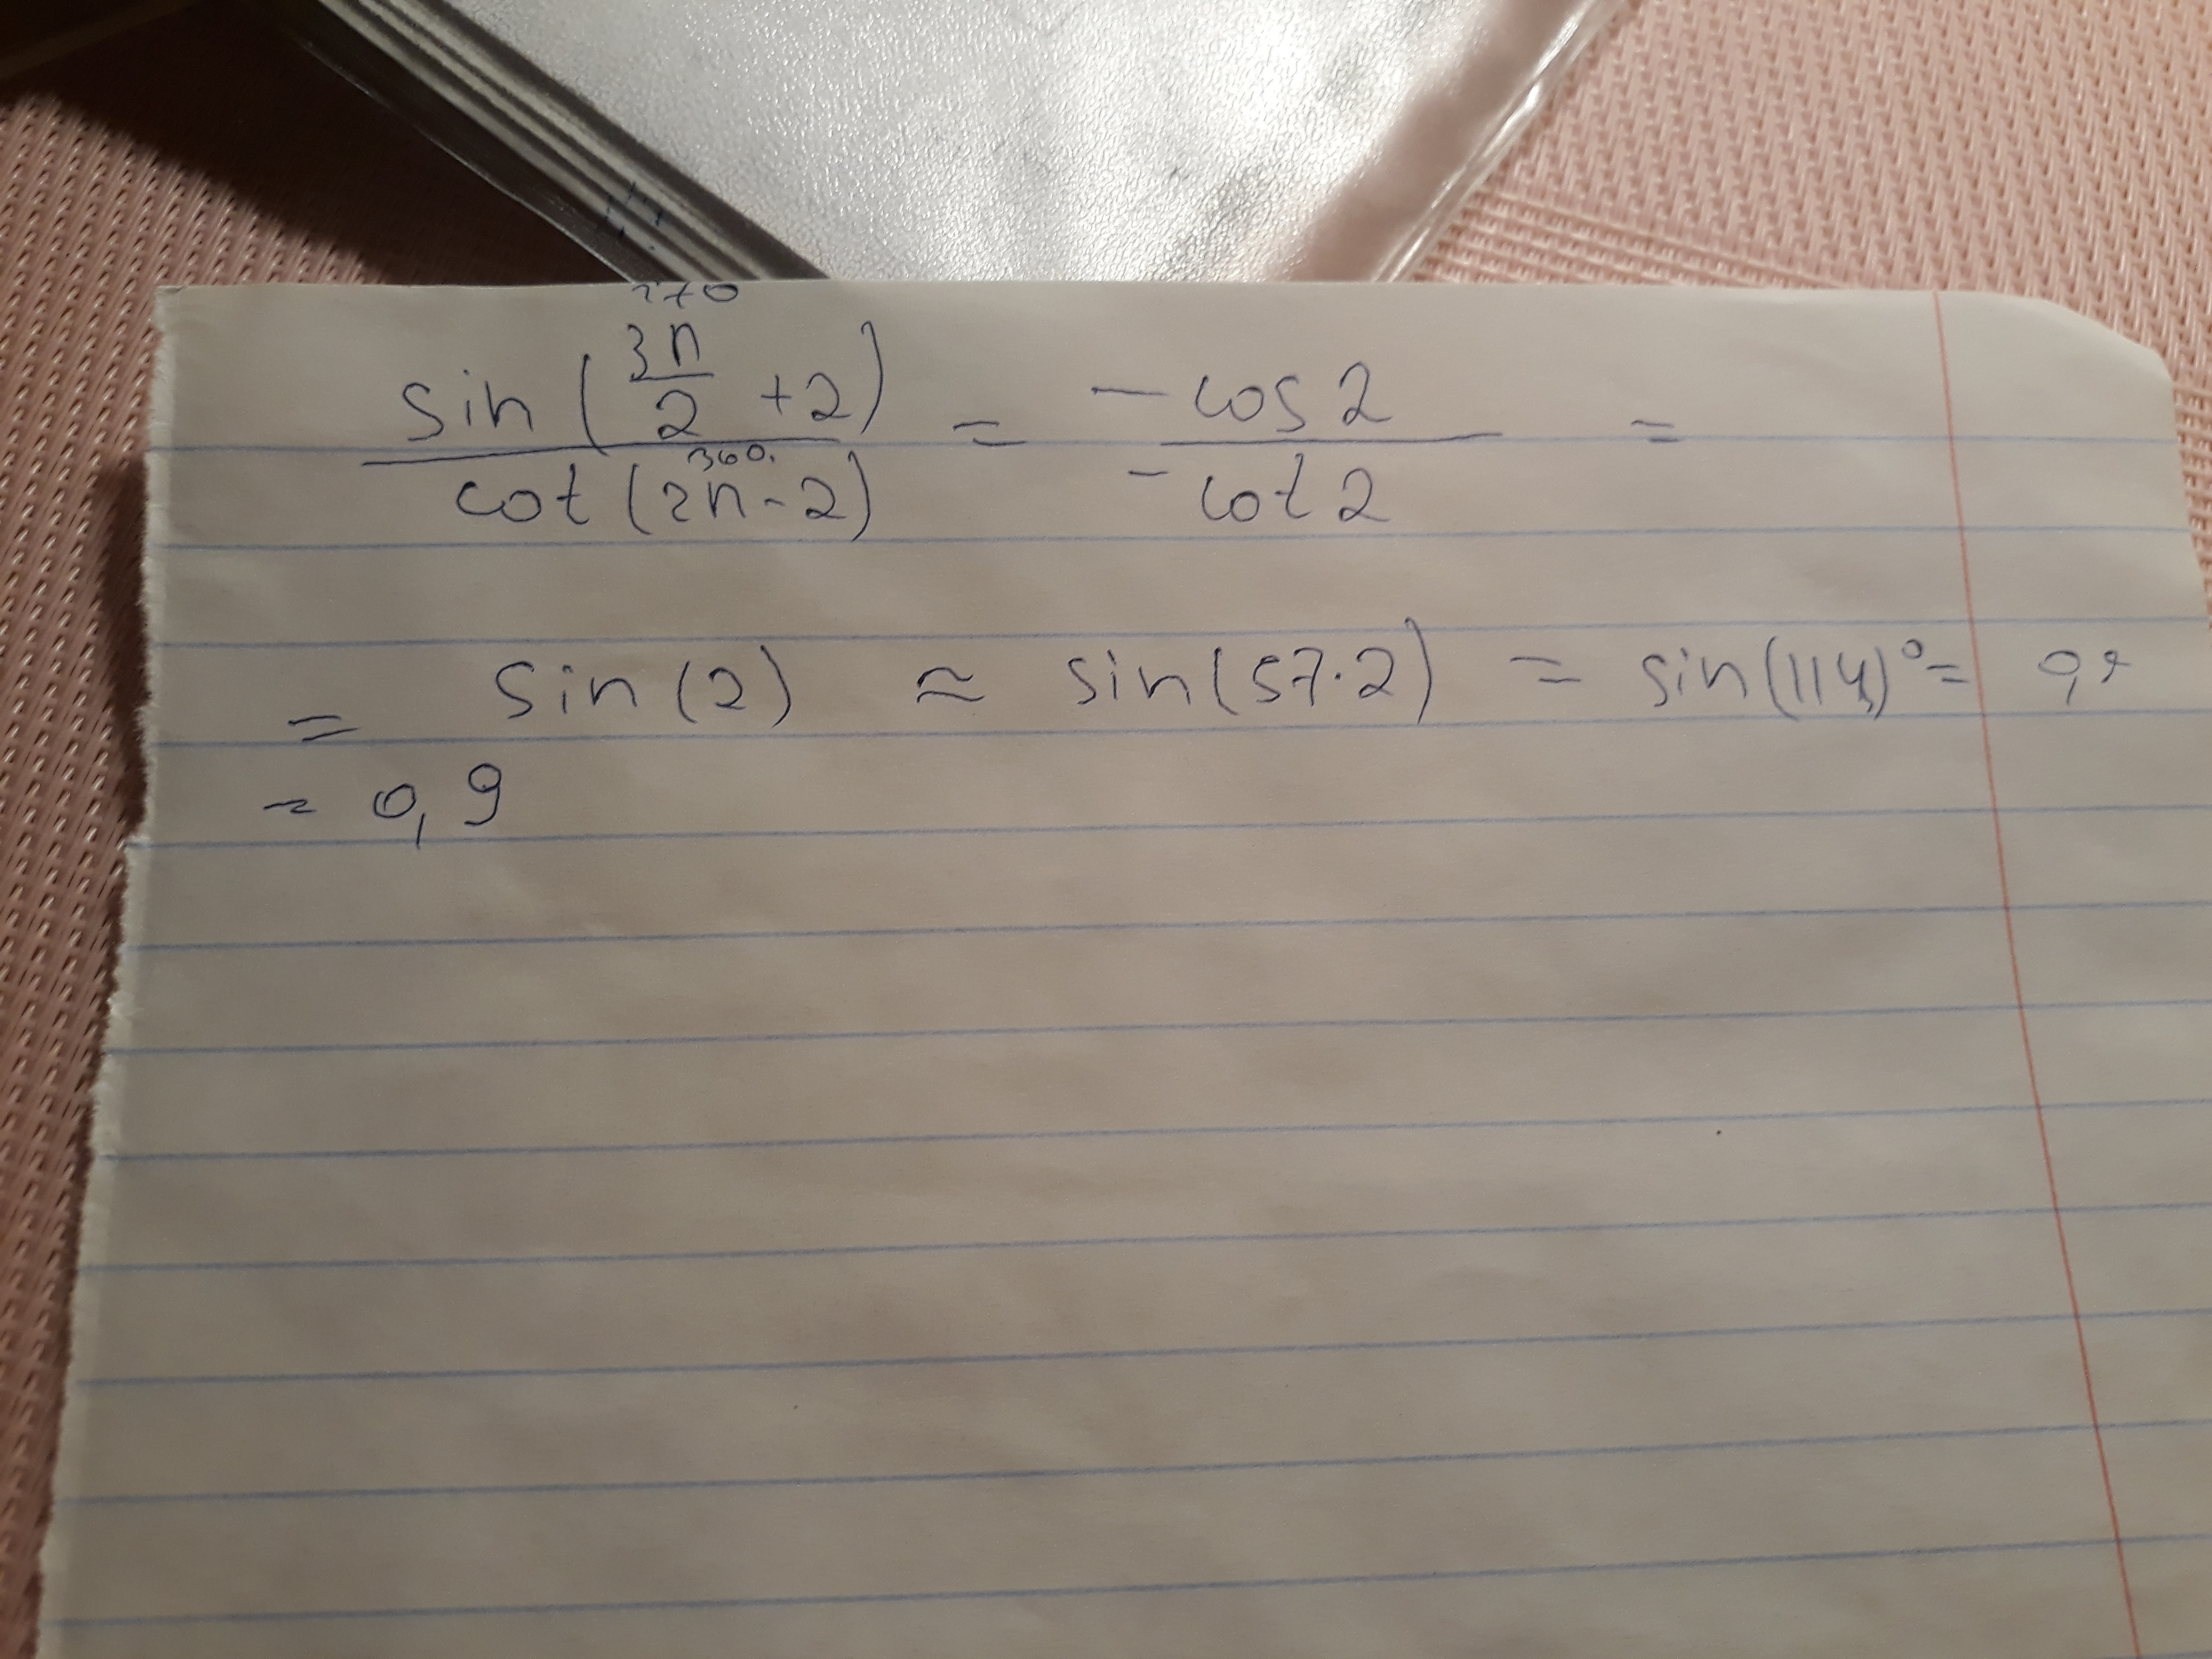 270
sin(3π/2 + 2) / cot(2π - 2) = -cos 2 / -cot 2 =
360.
= sin(2) ≈ sin(57·2) = sin(114)° = 0,9
≈ 0,9